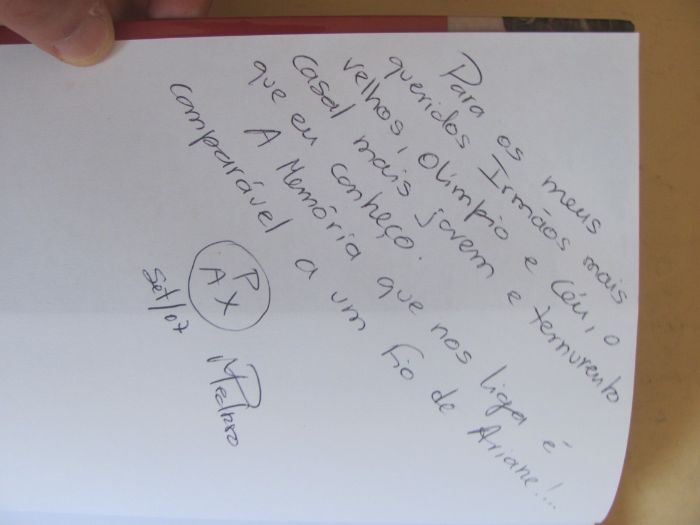 Para os meus
queridos Irmãos mais
velhos, Olímpio e Céu, o
casal mais jovem e ternurento
que eu conheço.
A Memória que nos liga é
comparável a um Fio de Ariane!...
P
A X
Pedro
Set/07